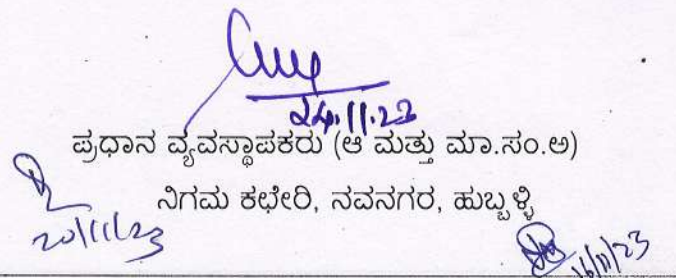 24.11.23
ಪ್ರಧಾನ ವ್ಯವಸ್ಥಾಪಕರು (ಆ ಮತ್ತು ಮಾ.ಸಂ.ಅ)
ನಿಗಮ ಕಛೇರಿ, ನವನಗರ, ಹುಬ್ಬಳ್ಳಿ
20/11/23
16/11/23